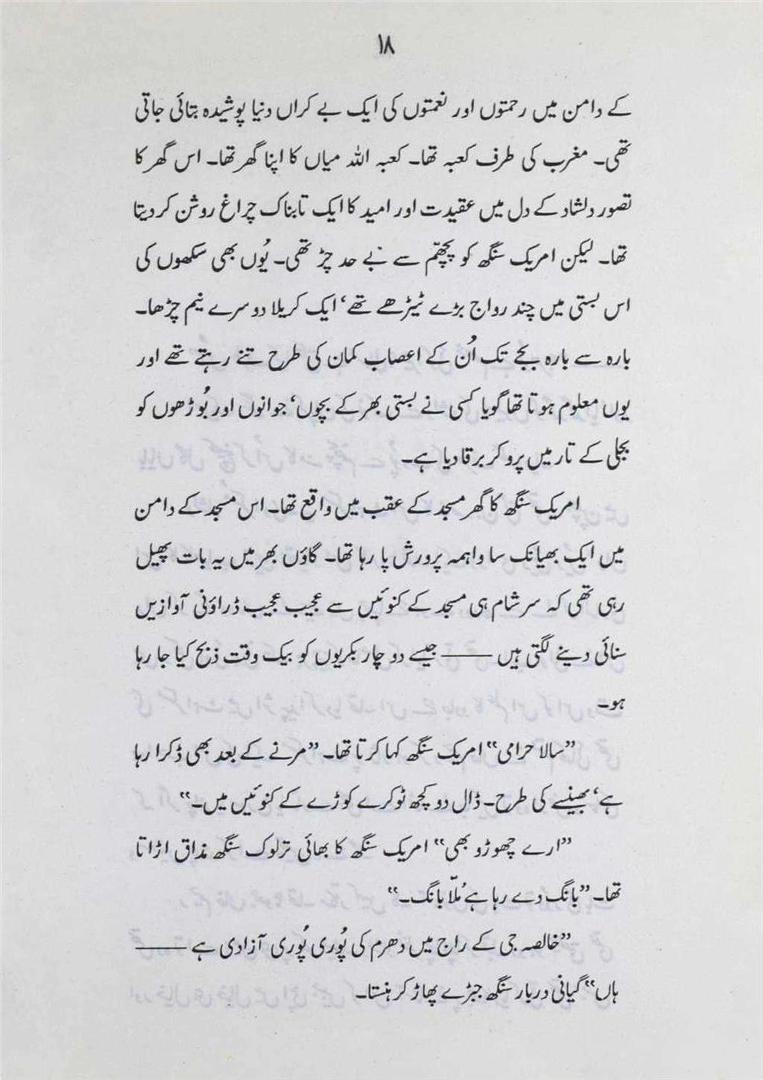 ۱۸
کے دامن میں رحمتوں اور نعمتوں کی ایک بے کراں دنیا پوشیدہ بتائی جاتی
تھی۔ مغرب کی طرف کعبہ تھا۔ کعبہ اللہ میاں کا اپنا گھر تھا۔ اس گھر کا
تصور دلشاد کے دل میں عقیدت اور امید کا ایک تابناک چراغ روشن کر دیتا
تھا۔ لیکن امریک سنگھ کو پچھّم سے بے حد چڑ تھی۔ یُوں بھی سکھوں کی
اس بستی میں چند رواج بڑے ٹیڑھے تھے‘ ایک کریلا دوسرے نیم چڑھا۔
بارہ سے بارہ بجے تک اُن کے اعصاب کمان کی طرح تنے رہتے تھے اور
یوں معلوم ہوتا تھا گویا کسی نے بستی بھر کے بچوں‘ جوانوں اور بُوڑھوں کو
بجلی کے تار میں پرو کر برقا دیا ہے۔
امریک سنگھ کا گھر مسجد کے عقب میں واقع تھا۔ اس مسجد کے دامن
میں ایک بھیانک سا واہمہ پرورش پا رہا تھا۔ گاؤں بھر میں یہ بات پھیل
رہی تھی کہ سر شام ہی مسجد کے کنوئیں سے عجیب عجیب ڈراؤنی آوازیں
سنائی دینے لگتی ہیں ——— جیسے دو چار بکریوں کو بیک وقت ذبح کیا جا رہا
ہو۔
”سالا حرامی“ امریک سنگھ کہا کرتا تھا۔ ”مرنے کے بعد بھی ڈکرا رہا
ہے‘ بھینسے کی طرح۔ ڈال دو کچھ ٹوکرے کوڑے کے کنوئیں میں۔“
”ارے چھوڑو بھی“ امریک سنگھ کا بھائی ترلوک سنگھ مذاق اڑاتا
تھا۔ ”بانگ دے رہا ہے مُلّا بانگ۔“
”خالصہ جی کے راج میں دھرم کی پُوری پُوری آزادی ہے ———
ہاں“ گیانی دربار سنگھ جبڑے پھاڑ کر ہنستا۔